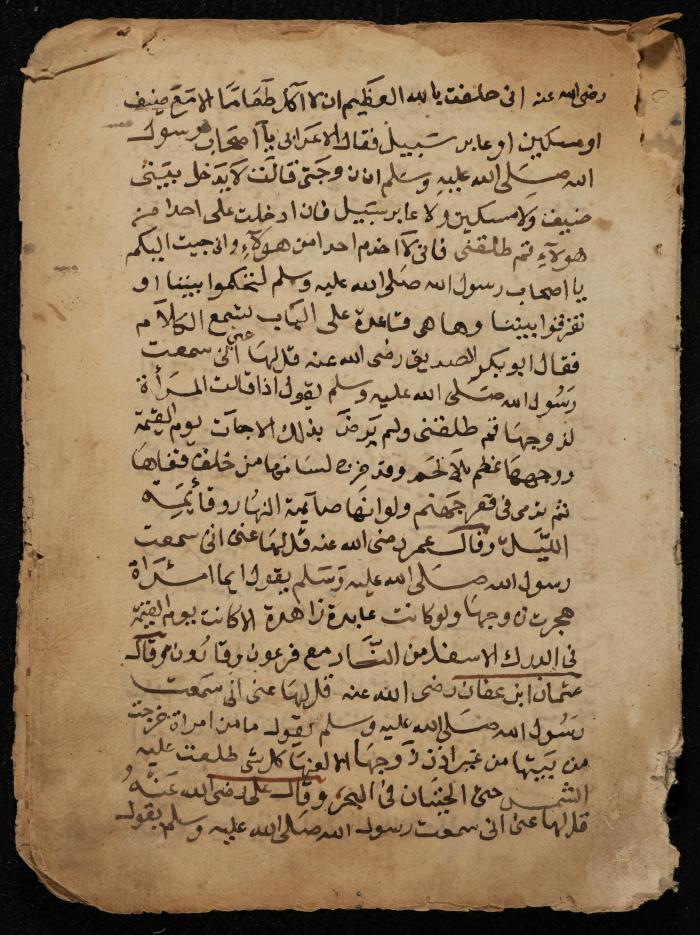 رضى الله عنه انى حلفت بالله العظيم ان لا آكل طعامًا الا مع ضيف
او مسكين او عابر سبيل فقال الاعرابى يا اصحاب رسول
الله صلى الله عليه وسلم ان زوجتى قالت لا يدخل بيتى
ضيف ولا مسكين ولا عابر سبيل فان ادخلت على احدا من
هولآء قم طلقنى فانى لا اخدم احدا من هولآء وانى جيت اليكم
يا اصحاب رسول الله صلى الله عليه وسلم لتحكموا بيننا او
تفرقوا بيننا وها هى قاعدة على الباب لتسمع الكلام
فقال ابو بكر الصديق رضى الله عنه قل لها عنى انى سمعت
رسول الله صلى الله عليه وسلم يقول اذا قالت المرأة
لزوجها قم طلقنى ولم يرض بذلك الا جآت يوم القيمة
ووجهها عظم بلا لحم وقد خرج لسانها من خلف قفاها
ثم ترمى فى قعر جهنم ولو انها صآيمة النهار وقآيمة
الليل وقال عمر رضى الله عنه قل لها عنى انى سمعت
رسول الله صلى الله عليه وسلم يقول ايما امرأة
هجرت زوجها ولو كانت عابدة زاهدة الا كانت يوم القيمة
فى الدرك الاسفل من النار مع فرعون وقارون وقال
عثمان ابن عفان رضى الله عنه قل لها عنى انى سمعت
رسول الله صلى الله عليه وسلم يقول ما من امرأة خرجت
من بيتها من غير اذن زوجها الا لعنها كل شى طلعت عليه
الشمس حتى الحيتان فى البحر وقال على رضى الله عنه
قل لها عنى انى سمعت رسول الله صلى الله عليه وسلم يقول